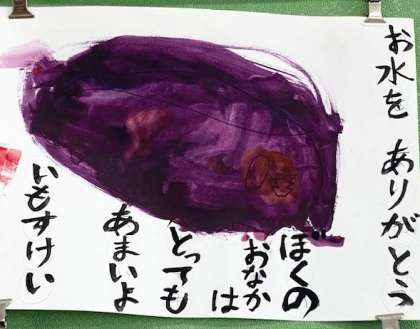 お水を ありがとう
ぼくの
おなか
は
とっても
あまいよ
いもすけい